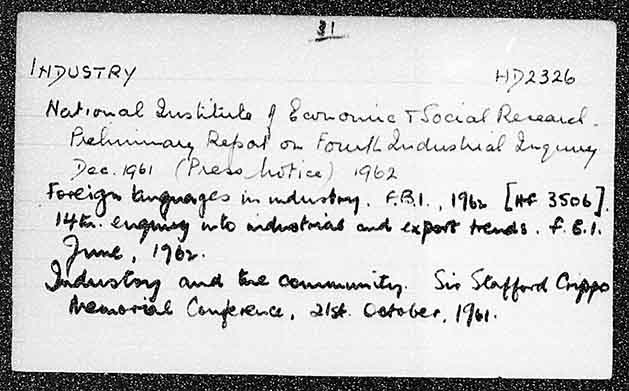 31
INDUSTRY HD2326
National Institute of Economic & Social Research.
Preliminary Report on Fourth Industrial Inquiry
Dec. 1961 (Press notice) 1962
Foreign languages in industry. F.B.I., 1962 [HF 3506].
14th. enquiry into industrial and export trends. F.B.I.
June, 1962.
Industry and the community. Sir Stafford Cripps
Memorial Conference, 21st. October, 1961.